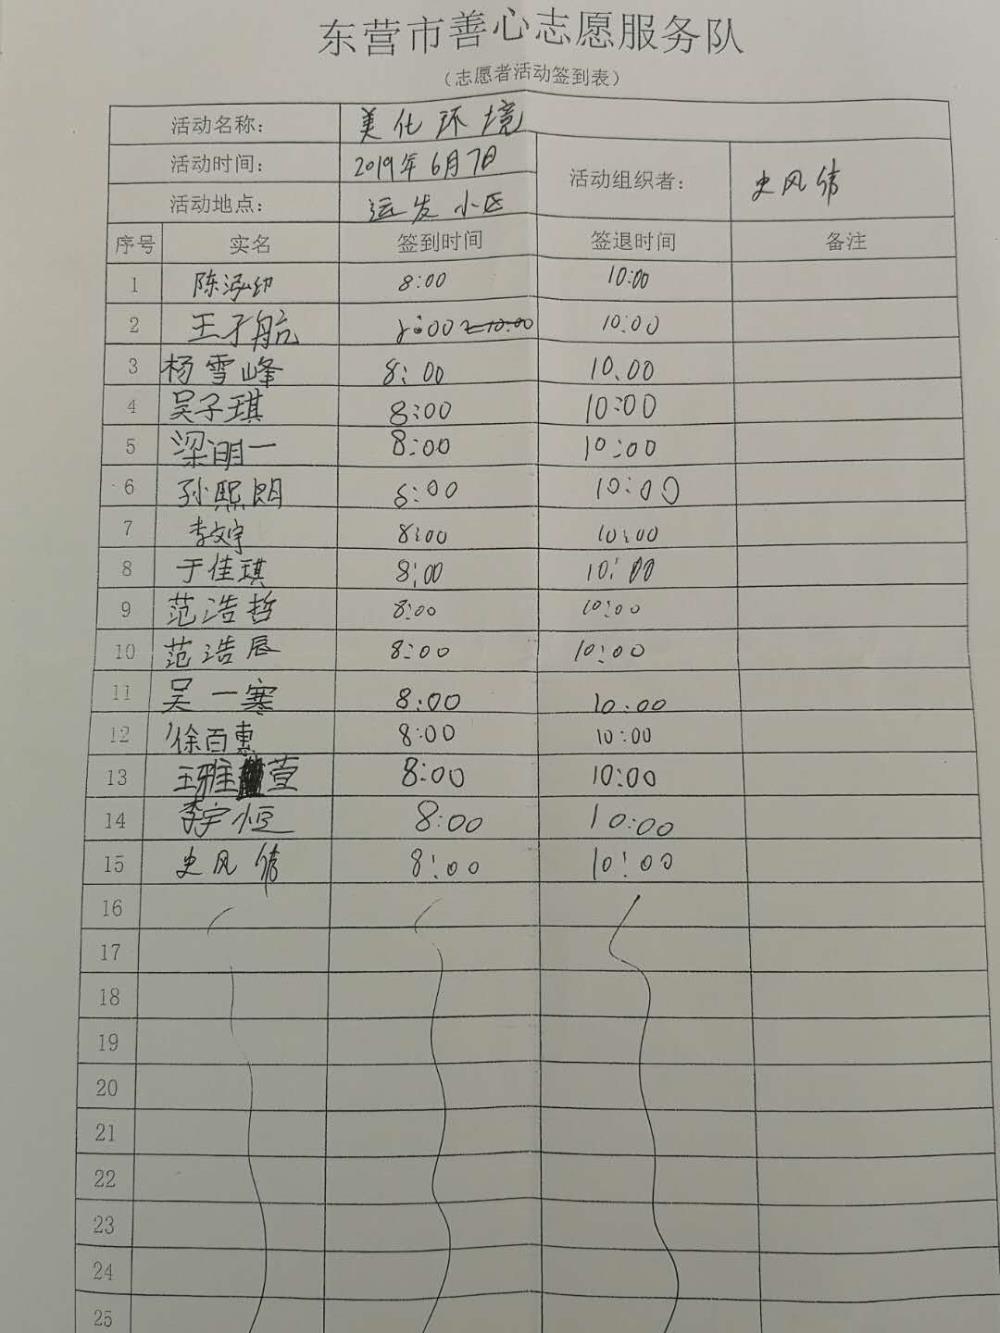 东营市善心志愿服务队
（志愿者活动签到表）
活动名称： 美化环境
活动时间： 2019年6月7日 活动组织者： 史风倩
活动地点： 运发小区
序号 实名 签到时间 签退时间 备注
1 陈泓 8:00 10:00
2 王子航 8:00 10:00
3 杨雪峰 8:00 10.00
4 吴子琪 8:00 10:00
5 梁明一 8:00 10:00
6 孙熙朗 8:00 10:00
7 李文宇 8:00 10:00
8 于佳琪 8:00 10:00
9 范浩哲 8:00 10:00
10 范浩辰 8:00 10:00
11 吴一寒 8:00 10:00
12 徐百惠 8:00 10:00
13 王雅萱 8:00 10:00
14 李宇恒 8:00 10:00
15 史风倩 8:00 10:00
16
17
18
19
20
21
22
23
24
25